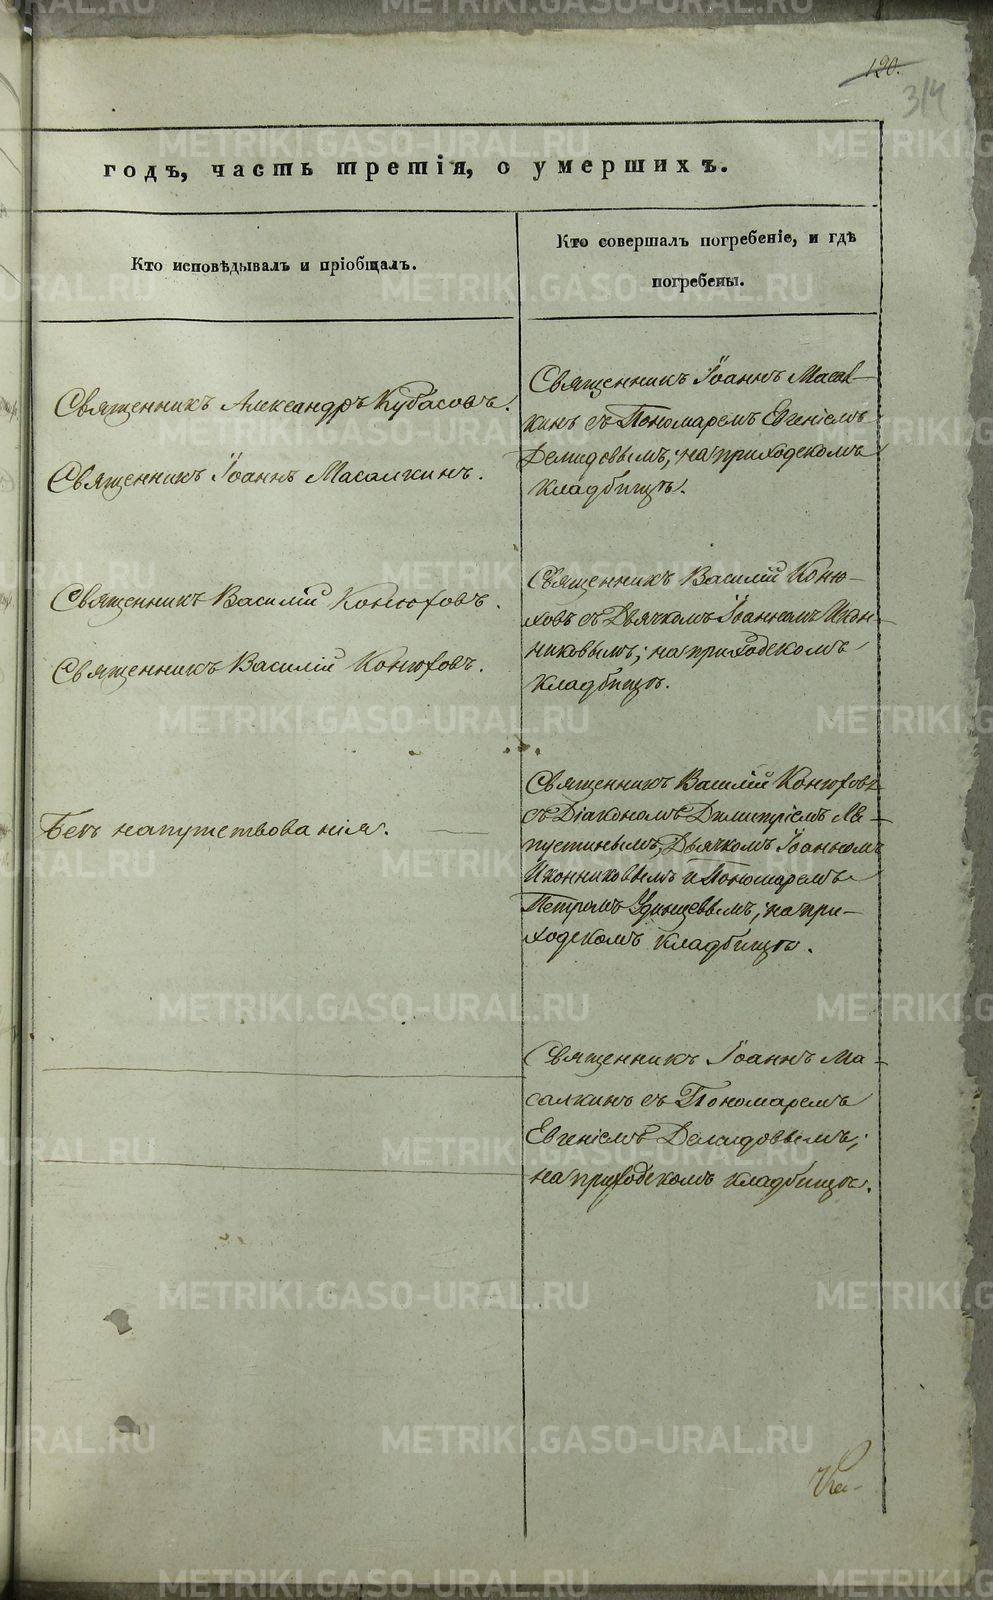 120.
314
годъ, часть третія, о умершихъ.
Кто исповѣдывалъ и пріобщалъ.
Кто совершалъ погребеніе, и гдѣ
погребены.
Священникъ Александръ Кубасовъ.
Священникъ Іоаннъ Масалкинъ.
Священникъ Іоаннъ Масал-
кинъ съ Пономаремъ Евгеніемъ
Демидовымъ, на приходскомъ
кладбищѣ.
Священникъ Василій Конюховъ.
Священникъ Василій Конюховъ.
Священникъ Василій Коню-
ховъ съ Дьячкомъ Іоанномъ Икон-
никовымъ; на приходскомъ
кладбищѣ.
Безъ напутствованія.
Священникъ Василій Конюховъ
съ Діакономъ Димитріемъ
пустинымъ, Дьячкомъ Іоанномъ
Иконниковымъ и Пономаремъ
Петромъ; на при-
ходскомъ кладбищѣ.
Священникъ Іоаннъ Ма-
салкинъ съ Пономаремъ
Евгеніемъ Демидовымъ;
на приходскомъ кладбищѣ.
METRIKI.GASO-URAL.RU